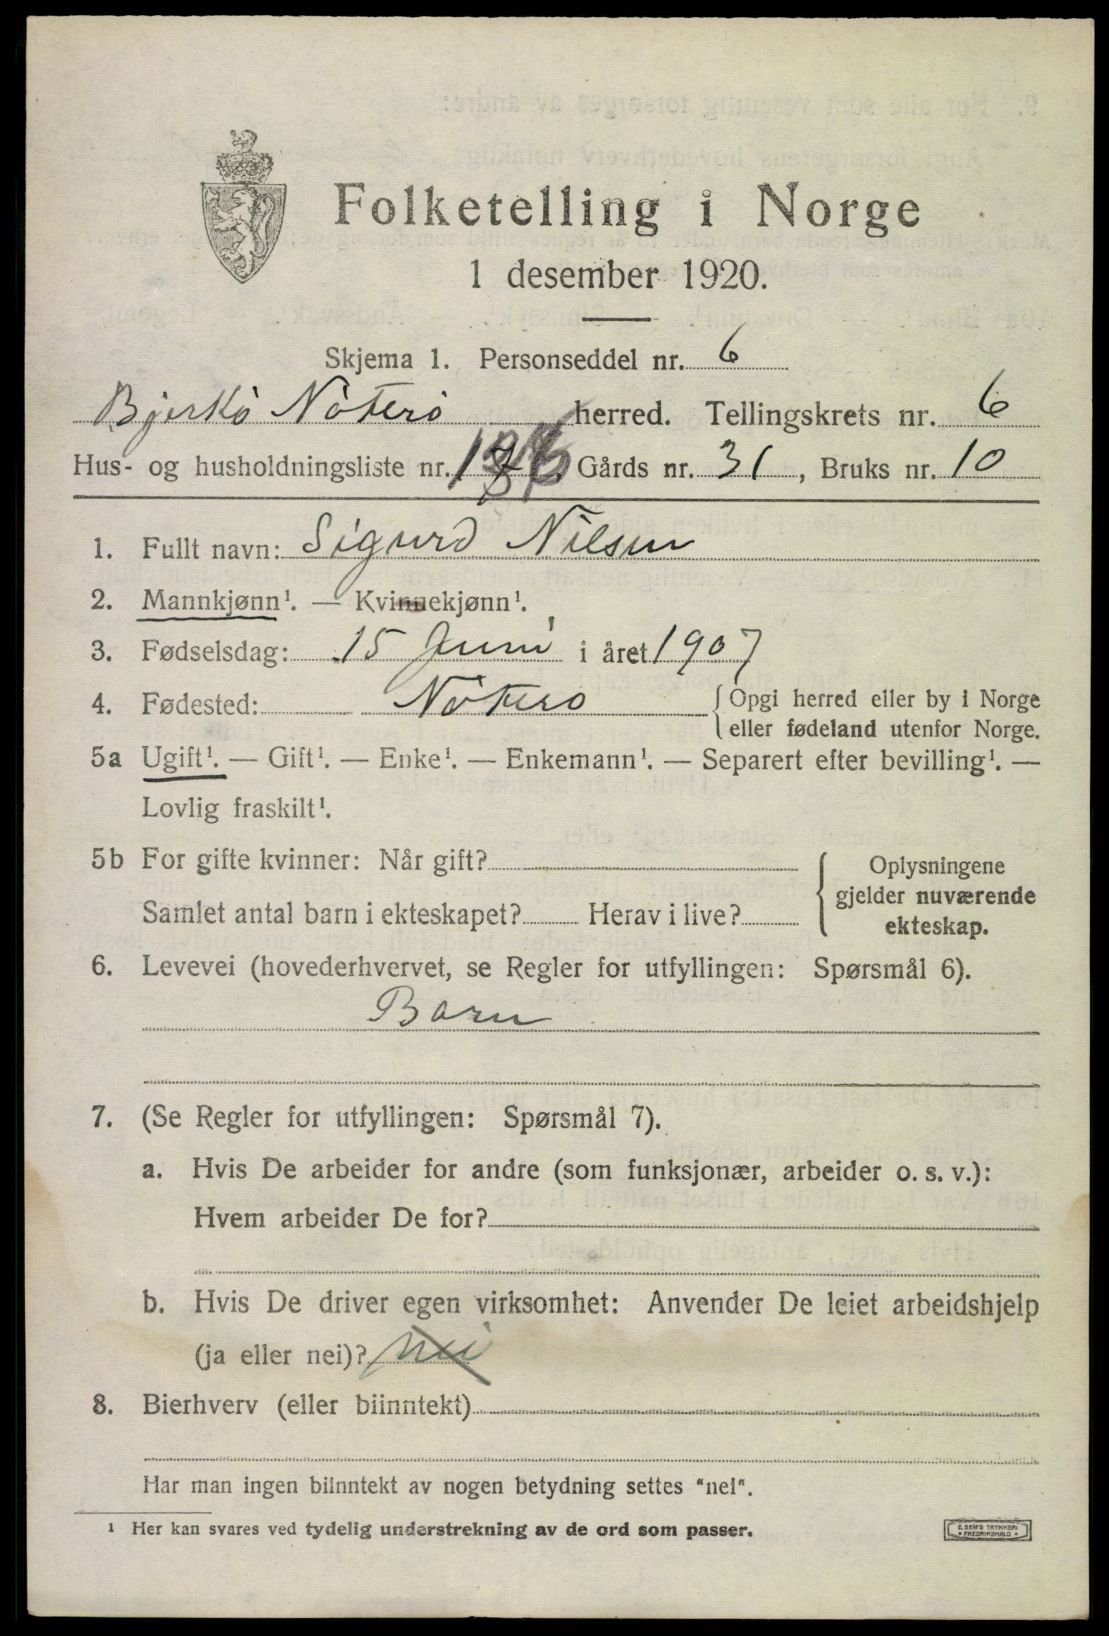 Folketelling i Norge
1 desember 1920.
Skjema 1. Personseddel nr. 6
Bjerkø Nøterø herred. Tellingskrets nr. 6
Hus- og husholdningsliste nr. Gårds nr. 31, Bruks nr. 10
1. Fullt navn: Sigurd Nilsen
2. Mannkjønn¹. — Kvinnekjønn¹.
3. Fødselsdag: 15 Juni i året 1907
4. Fødested: Nøterø { Opgi herred eller by i Norge
eller fødeland utenfor Norge.
5a Ugift¹. — Gift¹. — Enke¹. — Enkemann¹. — Separert efter bevilling¹. —
Lovlig fraskilt¹.
5b For gifte kvinner: Når gift?
Samlet antal barn i ekteskapet? Herav i live?
{ Oplysningene
gjelder nuværende
ekteskap.
6. Levevei (hovederhvervet, se Regler for utfyllingen: Spørsmål 6).
Barn
7. (Se Regler for utfyllingen: Spørsmål 7).
a. Hvis De arbeider for andre (som funksjonær, arbeider o. s. v.):
Hvem arbeider De for?
b. Hvis De driver egen virksomhet: Anvender De leiet arbeidshjelp
(ja eller nei)? nei
8. Bierhverv (eller biinntekt)
Har man ingen biinntekt av nogen betydning settes "nei".
¹ Her kan svares ved tydelig understrekning av de ord som passer.
E. SEM'S TRYKKERI
FREDRIKSHALD